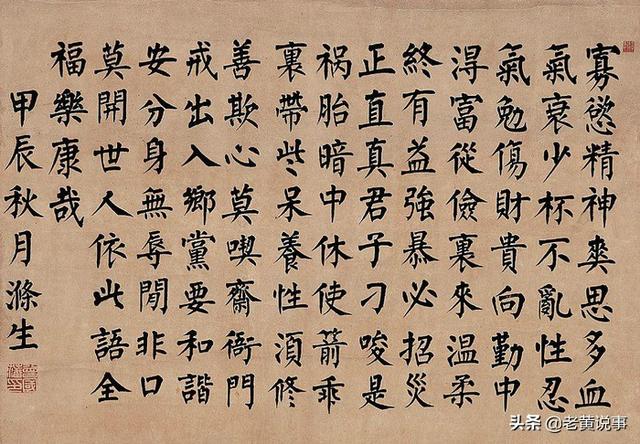 寡慾精神爽思多血
氣衰少杯不亂性忍
氣勉傷財貴向勤中
淂富從儉裏來溫柔
終有益強暴必招災
正直真君子刁唆是
禍胎暗中休使箭乖
裏帶些呆養性湏修
善欺心莫喫齋衙門
戒出入鄉黨要和諧
安分身無辱閒非口
莫開世人依此語全
福樂康哉
甲辰秋月滌生
头条 @老黄说事